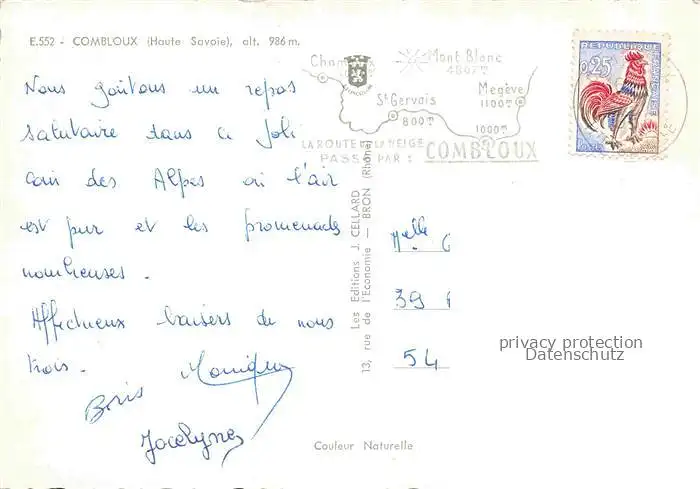 E.552 - COMBLOUX (Haute Savoie), alt. 986 m.
Nous goûtons un repos
salutaire dans ce joli
coin des Alpes où l'air
est pur et les promenades
nombreuses.
Affectueux baisers de nous
trois.
Boris Monique
Jocelyne
13, rue de l'Economie — BRON (Rhône)
Les Editions J. CELLARD
Mont Blanc
4807m
Megève
1100m
St Gervais
800m
1000m
LA ROUTE DE LA NEIGE
PASSE PAR : COMBLOUX
REPUBLIQUE FRANÇAISE
0,25
Melle
39
54
privacy protection
Datenschutz
Couleur Naturelle